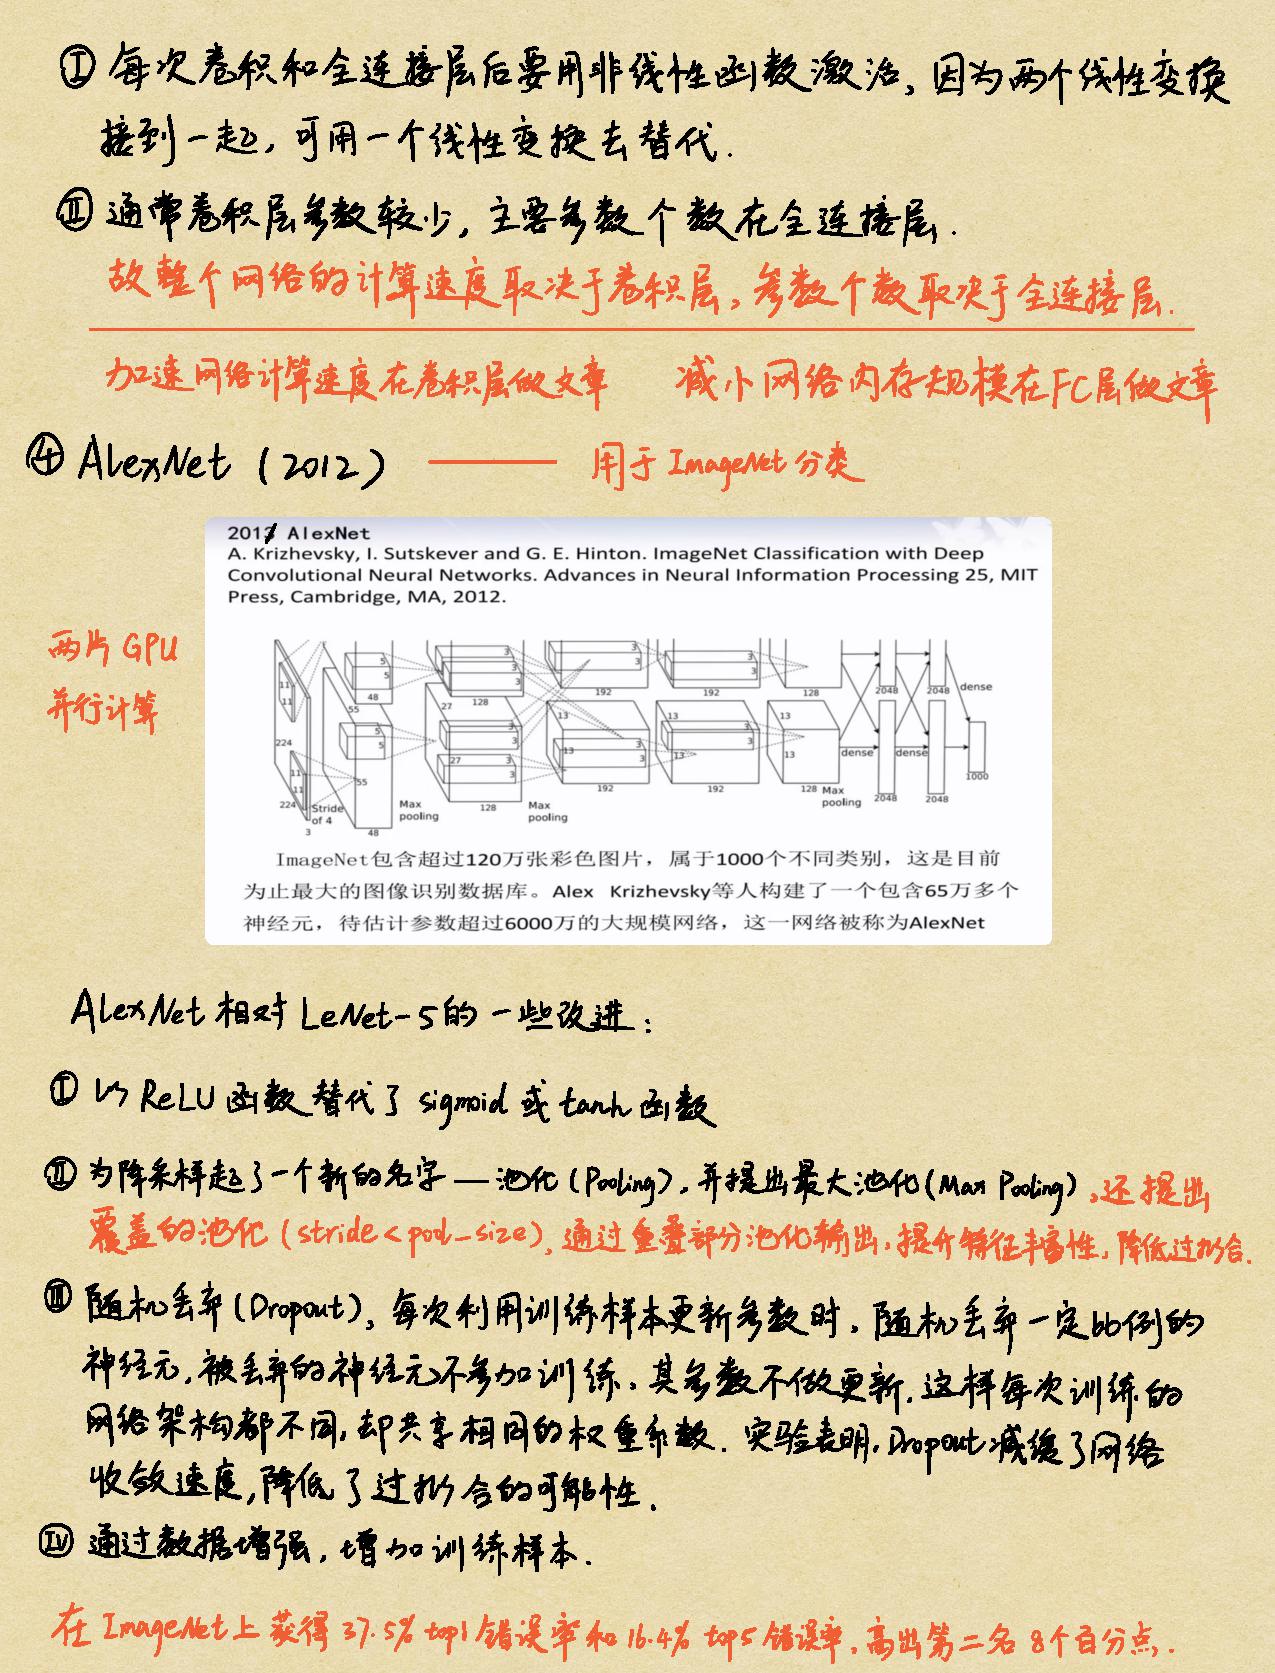 Ⅰ 每次卷积和全连接层后要用非线性函数激活,因为两个线性变换
接到一起,可用一个线性变换去替代.
Ⅱ 通常卷积层参数较少,主要参数个数在全连接层.
故整个网络的计算速度取决于卷积层,参数个数取决于全连接层.
加速网络计算速度在卷积层做文章 减小网络内存规模在FC层做文章
④ AlexNet (2012) —— 用于ImageNet分类
2012 AlexNet
A. Krizhevsky, I. Sutskever and G. E. Hinton. ImageNet Classification with Deep
Convolutional Neural Networks. Advances in Neural Information Processing 25, MIT
Press, Cambridge, MA, 2012.
两片GPU
并行计算
5 3 3 3
11 5 3 3 3
11 48 128 192 192 128 2048 2048 dense
55 27 13 13 13
224 5 3 3 3
5 3 13 3 13 3 13 dense dense
11 55 27 3
11 3 192 192 128 Max pooling 2048 2048 1000
224 Stride of 4 Max pooling 128 Max pooling
3 48
ImageNet包含超过120万张彩色图片，属于1000个不同类别，这是目前
为止最大的图像识别数据库。Alex Krizhevsky等人构建了一个包含65万多个
神经元，待估计参数超过6000万的大规模网络，这一网络被称为AlexNet
AlexNet相对LeNet-5的一些改进:
Ⅰ 以ReLU函数替代了sigmoid或tanh函数
Ⅱ 为降采样起了一个新的名字—池化(Pooling),并提出最大池化(Max Pooling),还提出
覆盖的池化(stride<pool-size),通过重叠部分池化输出,提升特征丰富性,降低过拟合.
Ⅲ 随机丢弃(Dropout),每次利用训练样本更新参数时,随机丢弃一定比例的
神经元,被丢弃的神经元不参加训练,其参数不做更新.这样每次训练的
网络架构都不同,却共享相同的权重系数.实验表明,Dropout减缓了网络
收敛速度,降低了过拟合的可能性.
Ⅳ 通过数据增强,增加训练样本.
在ImageNet上获得37.5% top1错误率和16.4% top5错误率,高出第二名8个百分点.